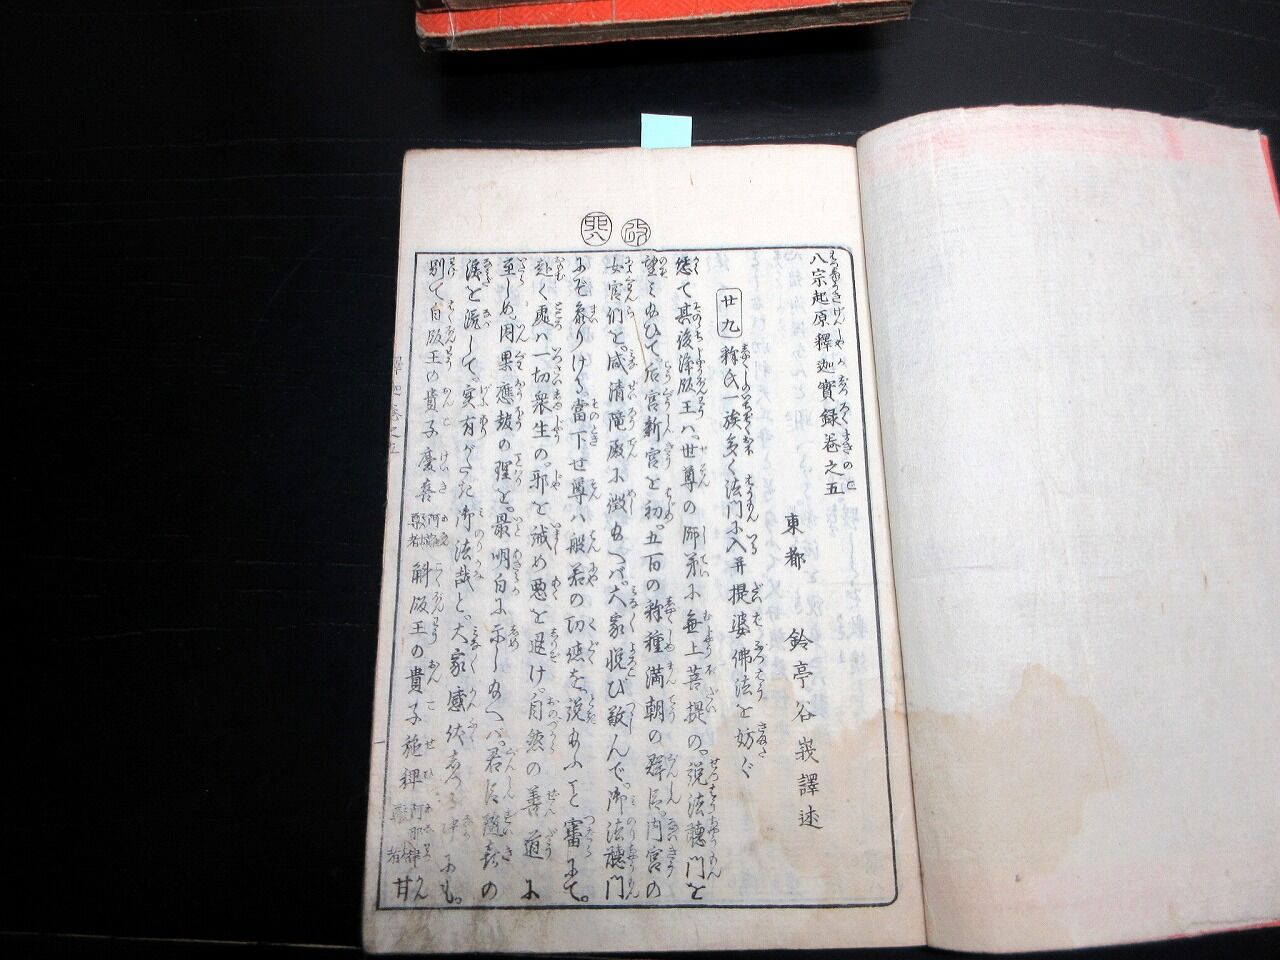 八宗起原釋迦實録卷之五
東都 鈴亭谷峩譯述
廿九 釋氏一族多く法門に入并提婆佛法を妨ぐ
恁て其後浄飯王ハ。世尊の師弟に無上菩提の。説法聴門を
望み給ひて。后宮新宮を初。五百の釋種満朝の群臣。内宮の
女官們を。咸清滝殿に徴給へバ。大家悦び敬んで。御法聴門
にぞ参りける當下世尊ハ般若の功徳を。説給ふこと審にて。
赴く處ハ一切衆生の。邪を誡め悪を退け。自然の善道に
至しめ。因果應報の理を。最明白に示し給へバ。君臣随喜の
涙を流して。実有がたき御法哉と。大家感伏なしける中にも。
別て白飯王の貴子慶喜 斛飯王の貴子 甘
釋迦卷之五